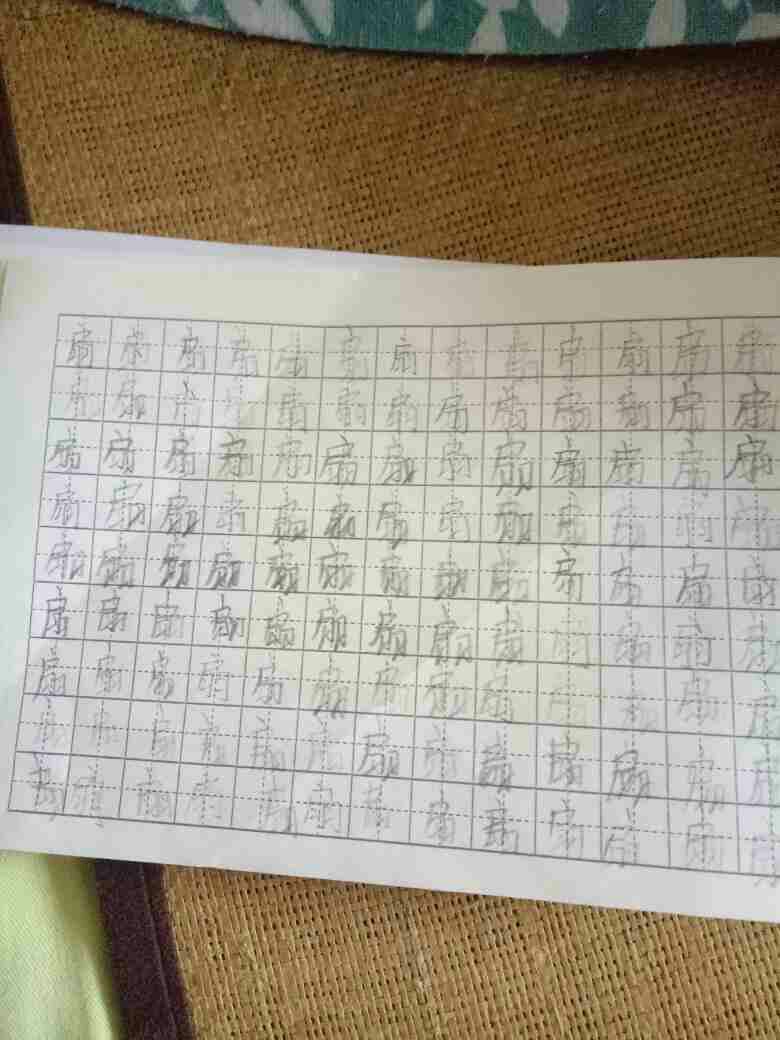 扇扇扇扇扇扇扇扇扇扇扇扇扇
扇扇扇扇扇扇扇扇扇扇扇扇扇
扇扇扇扇扇扇扇扇扇扇扇扇扇
扇扇扇扇扇扇扇扇扇扇扇扇扇
扇扇扇扇扇扇扇扇扇扇扇扇扇
扇扇扇扇扇扇扇扇扇扇扇扇扇
扇扇扇扇扇扇扇扇扇扇扇扇扇
扇扇扇扇扇扇扇扇扇扇扇扇扇
扇扇扇扇扇扇扇扇扇扇扇扇扇